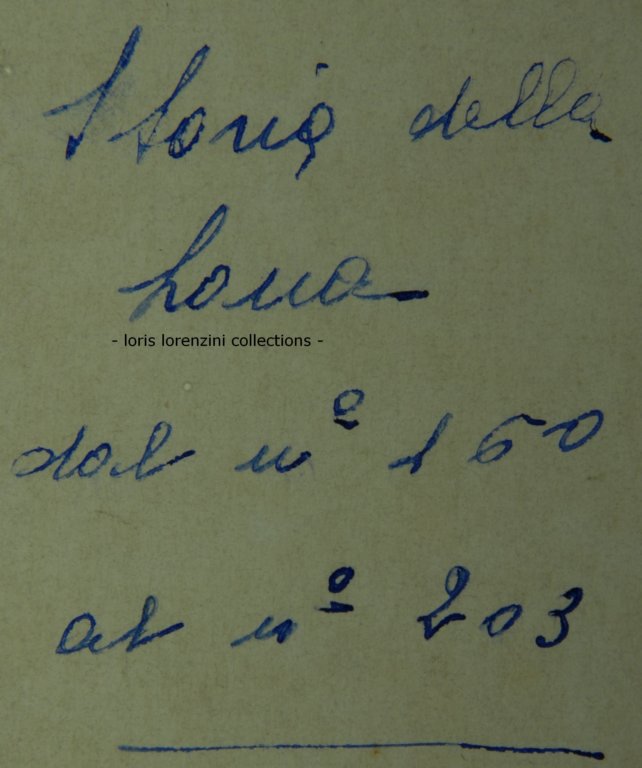 Storia della
Lana
- loris lorenzini collections -
dal nº 160
al nº 203